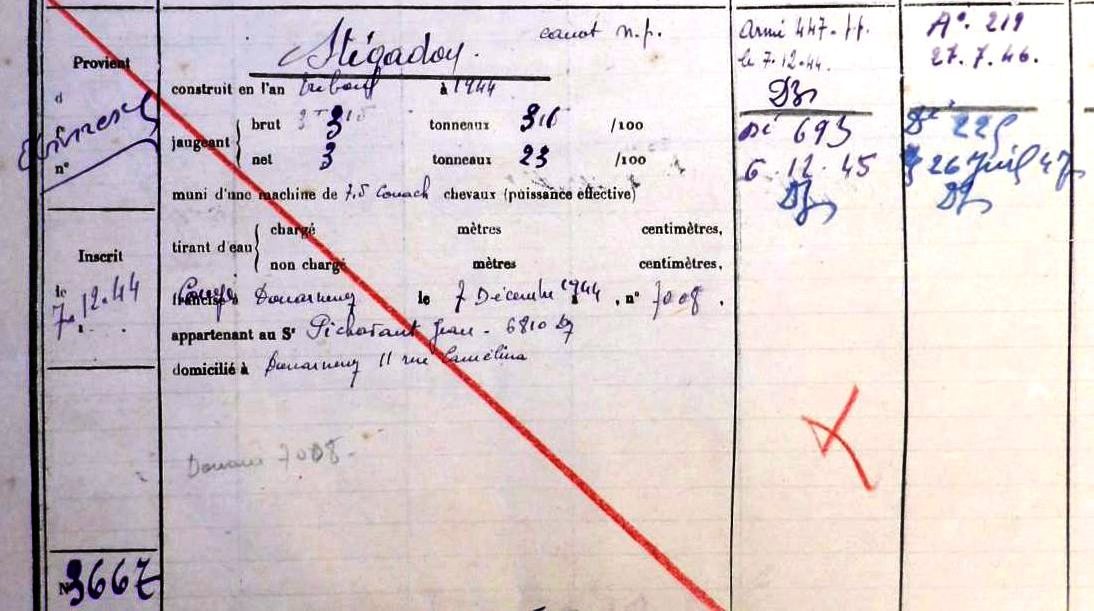 Provient
d
n°
Inscrit
le
7.12.44
N° 3667
canot n.p.
Stégadoy.
construit en l'an Tréboul à 1944
jaugeant { brut 3 tonneaux 316 /100
net 3 tonneaux 23 /100
muni d'une machine de 7,5 Couach chevaux (puissance effective)
tirant d'eau { chargé mètres centimètres,
non chargé mètres centimètres,
Congé Douarnenez le 7 Décembre 1944, n° 7008.
appartenant au Sr Pichavant Jean - 6810 Dz
domicilié à Douarnenez 11 rue Camélina
Douane 7008.
Armé 447. pp.
le 7.12.44.
Dz
Dé 693
6.12.45
Dz
A° 219
27.7.46.
Dé 225
26 Juil 47
Dz